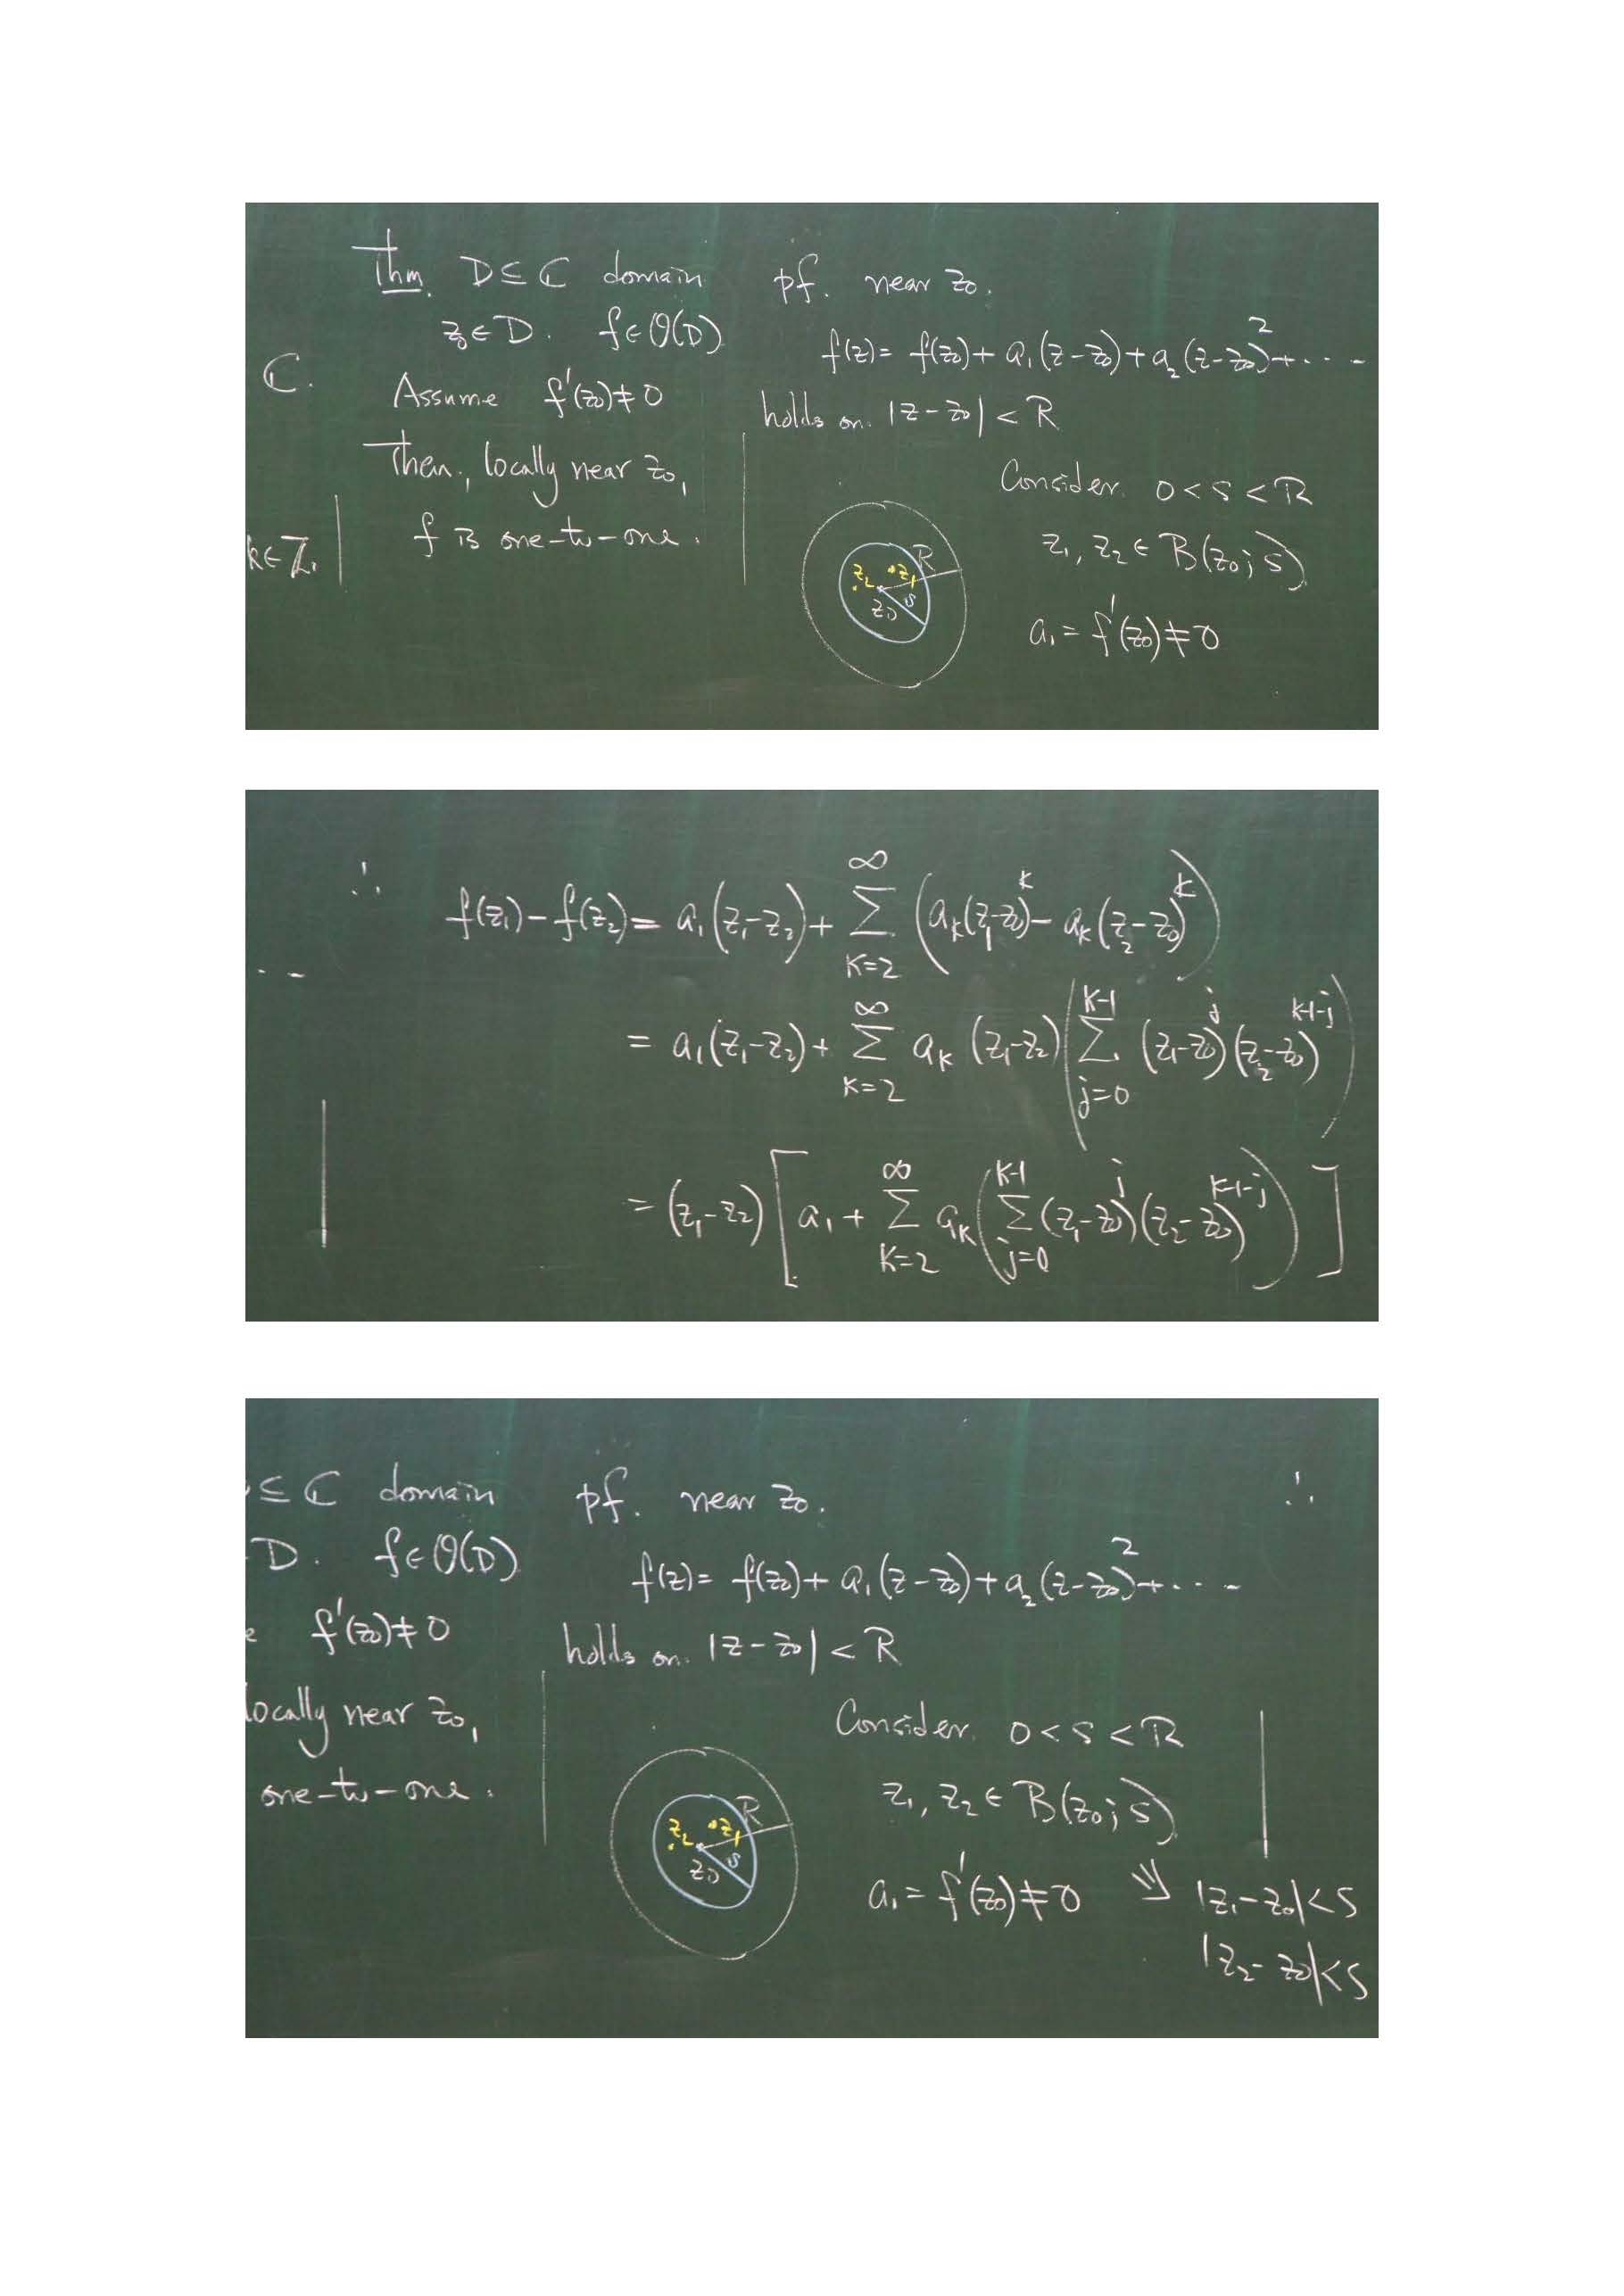 Thm. D ⊆ ℂ domain
z₀ ∈ D. f ∈ O(D)
ℂ.
Assume f'(z₀) ≠ 0
Then, locally near z₀,
k ∈ ℤ.
f is one-to-one.
pf. near z₀.
f(z) = f(z₀) + a₁(z - z₀) + a₂(z - z₀)² + ....
holds on |z - z₀| < R
Consider 0 < s < R
z₁, z₂ ∈ B(z₀; s)
a₁ = f'(z₀) ≠ 0
z₂ z₁ R
z₀ s
∴ f(z₁) - f(z₂) = a₁(z₁ - z₂) + ∑_{k=2}^{∞} (a_k(z₁ - z₀)^k - a_k(z₂ - z₀)^k)
= a₁(z₁ - z₂) + ∑_{k=2}^{∞} a_k (z₁ - z₂) (∑_{j=0}^{k-1} (z₁ - z₀)^j (z₂ - z₀)^{k-1-j})
= (z₁ - z₂) [a₁ + ∑_{k=2}^{∞} a_k (∑_{j=0}^{k-1} (z₁ - z₀)^j (z₂ - z₀)^{k-1-j})]
⊆ ℂ domain
D. f ∈ O(D)
f'(z₀) ≠ 0
locally near z₀,
one-to-one.
pf. near z₀.
∴
f(z) = f(z₀) + a₁(z - z₀) + a₂(z - z₀)² + ....
holds on |z - z₀| < R
Consider 0 < s < R
z₁, z₂ ∈ B(z₀; s)
a₁ = f'(z₀) ≠ 0 ⇓ |z₁ - z₀| < s
|z₂ - z₀| < s
z₂ z₁ R
z₀ s